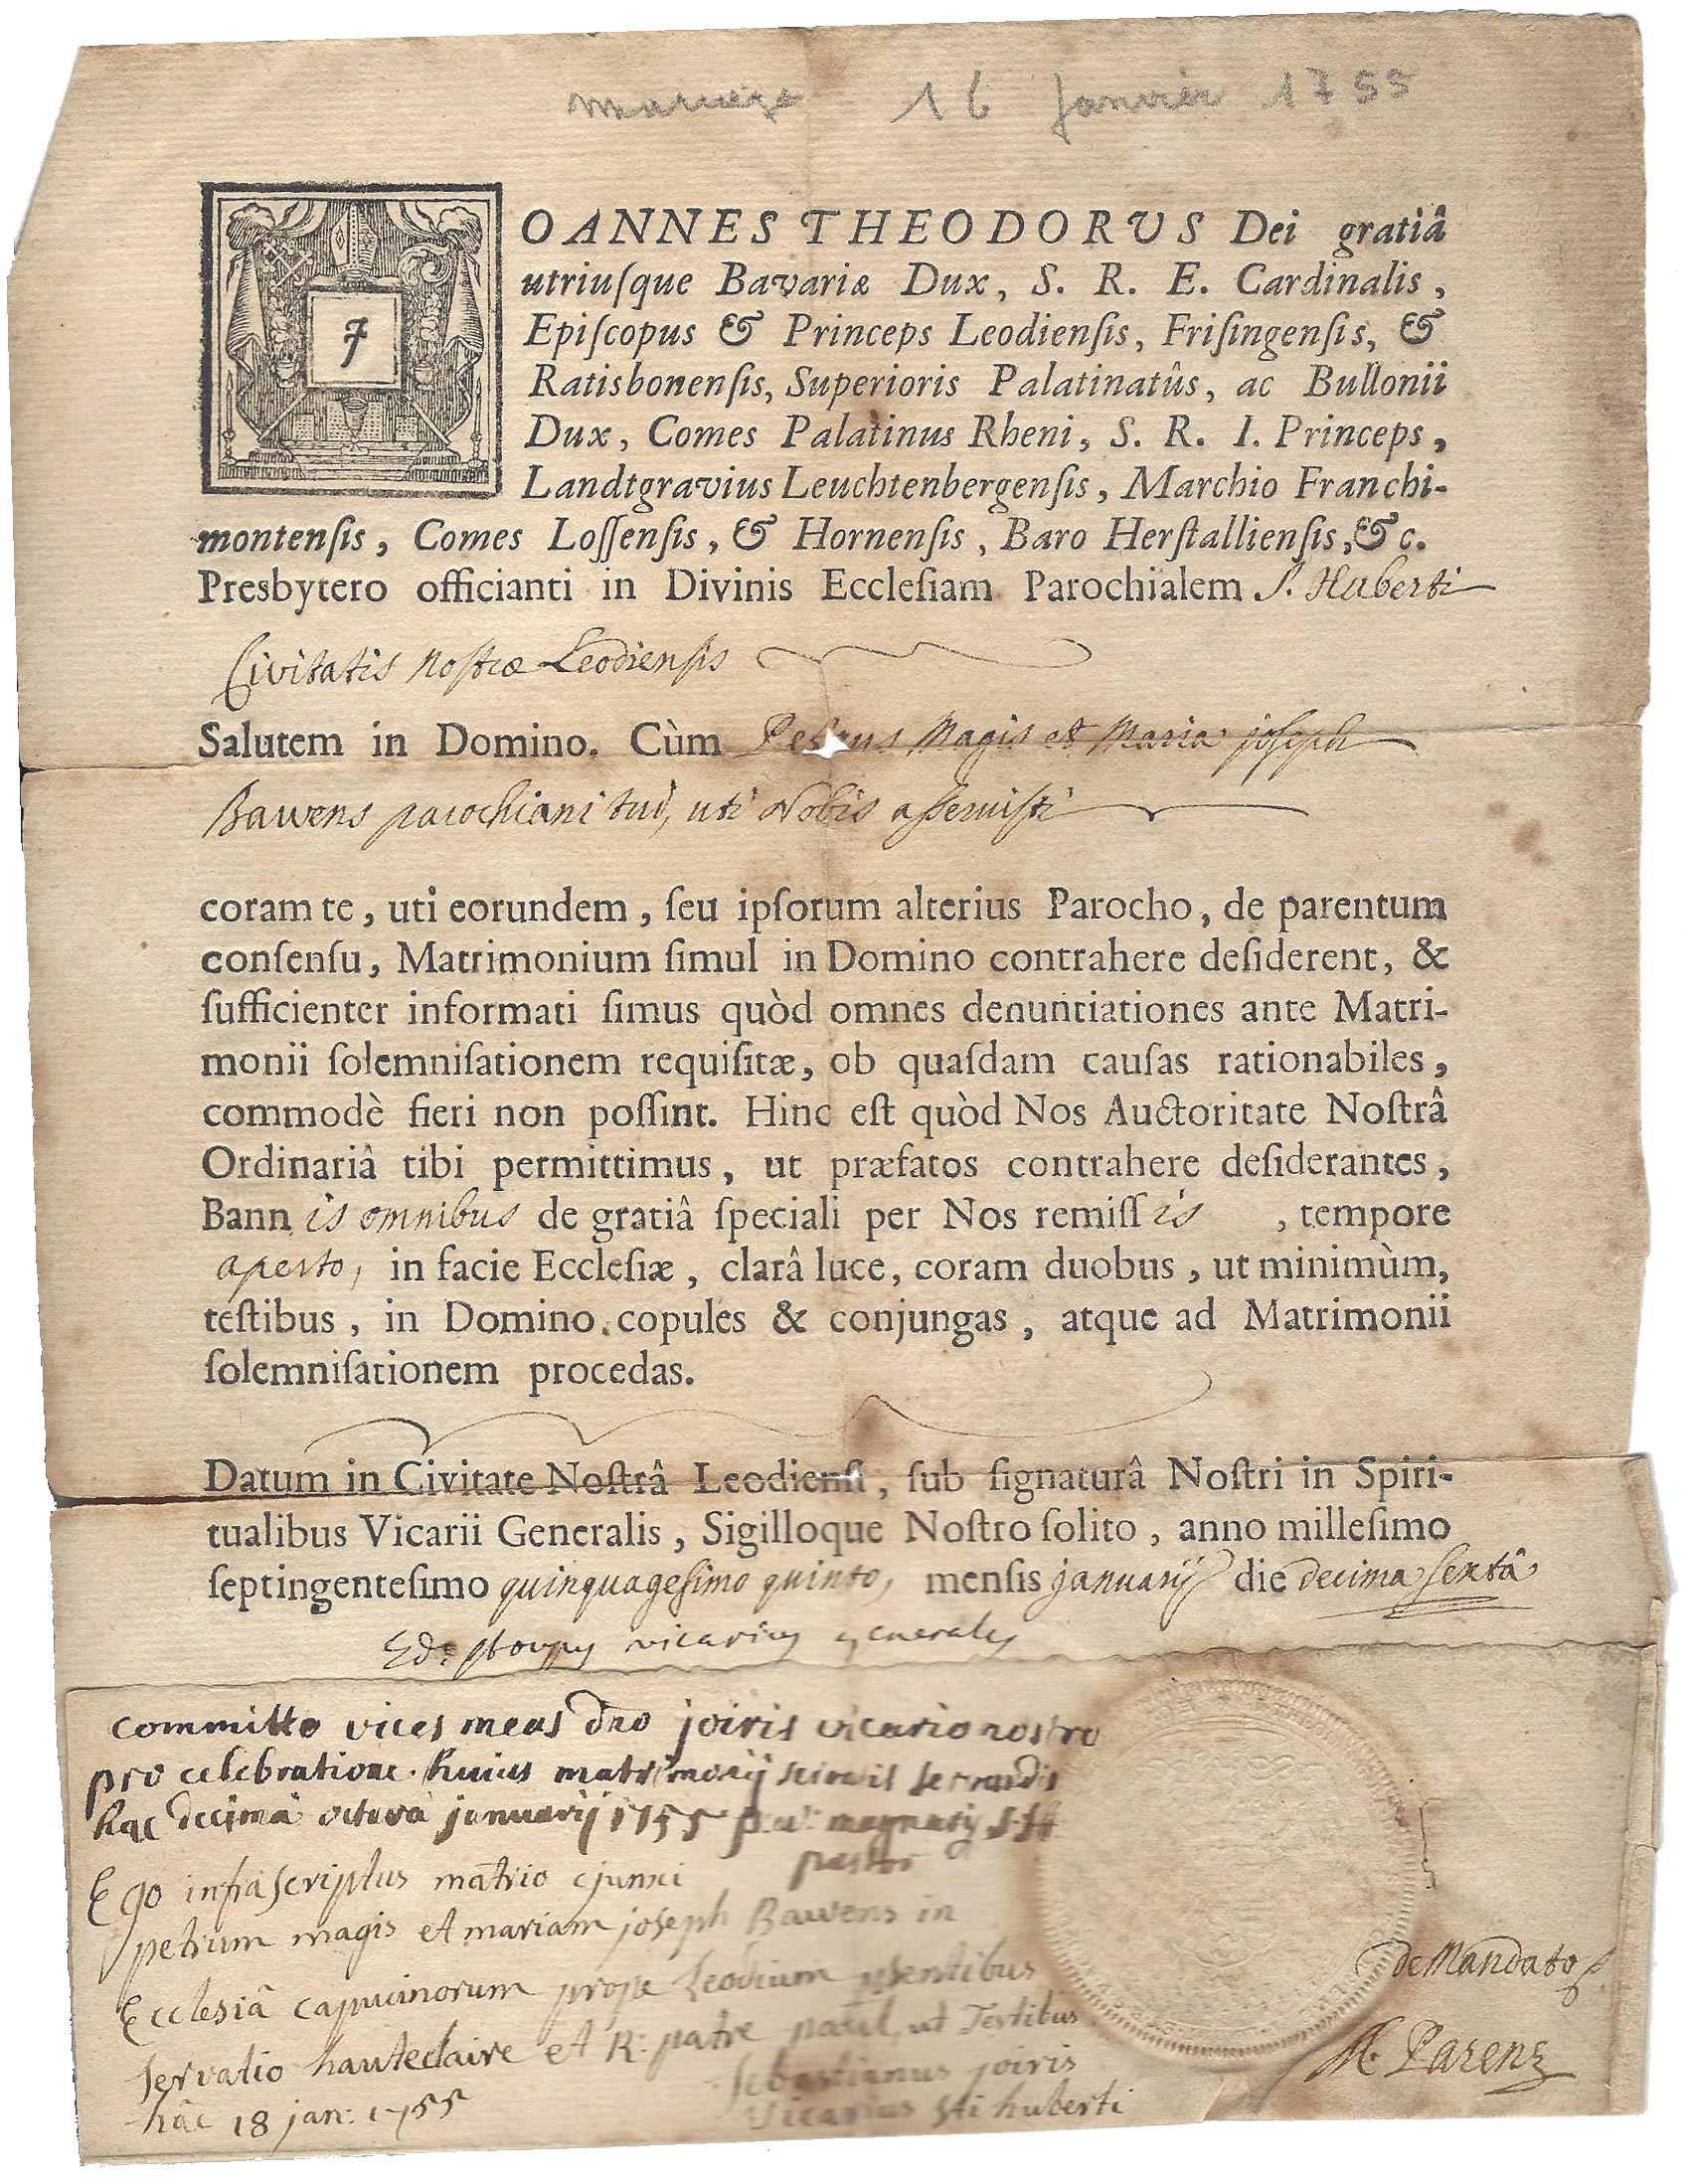 mariage 16 janvier 1755
JOANNES THEODORUS Dei gratiâ
utriuſque Bavariæ Dux, S. R. E. Cardinalis,
Epiſcopus & Princeps Leodienſis, Friſingenſis, &
Ratisbonenſis, Superioris Palatinatûs, ac Bullonii
Dux, Comes Palatinus Rheni, S. R. I. Princeps,
Landtgravius Leuchtenbergenſis, Marchio Franchi-
montenſis, Comes Loſſenſis, & Hornenſis, Baro Herſtallienſis, &c.
Presbytero officianti in Divinis Eccleſiam Parochialem S. Huberti
Civitatis noſtræ Leodienſis
Salutem in Domino. Cùm Petrus Magis et Maria joſeph
Bawens parochiani tui, uti Nobis aſſeruiſti
coram te, uti eorundem, ſeu ipſorum alterius Parocho, de parentum
conſenſu, Matrimonium ſimul in Domino contrahere deſiderent, &
ſufficienter informati ſimus quòd omnes denuntiationes ante Matri-
monii ſolemniſationem requiſitæ, ob quaſdam cauſas rationabiles,
commodè fieri non poſſint. Hinc eſt quòd Nos Auctoritate Noſtrâ
Ordinariâ tibi permittimus, ut præfatos contrahere deſiderantes,
Bannis omnibus de gratiâ ſpeciali per Nos remiſſis, tempore
aperto, in facie Eccleſiæ, clarâ luce, coram duobus, ut minimùm,
teſtibus, in Domino copules & conjungas, atque ad Matrimonii
ſolemniſationem procedas.
Datum in Civitate Noſtrâ Leodienſi, ſub ſignaturâ Noſtri in Spiri-
tualibus Vicarii Generalis, Sigilloque Noſtro ſolito, anno milleſimo
ſeptingenteſimo quinquageſimo quinto, menſis januarij die decima ſextâ
Ed: Stoupy vicarius generalis
committo vices meas dno joiris vicario nostro
pro celebratione huius matrimonij servatis servandis
hac decimâ octavâ januarij 1755
pastor
Ego infraſcriptus matrio cjunxi
petrum magis et mariam joseph Bawens in
Ecclesiâ capucinorum prope Leodium pſentibus
servatio hauteclaire et R: patre paul, ut Testibus
hâc 18 jan: 1755
Sebastianus joiris
Vicarius Sti huberti
de Mandato
Parenz